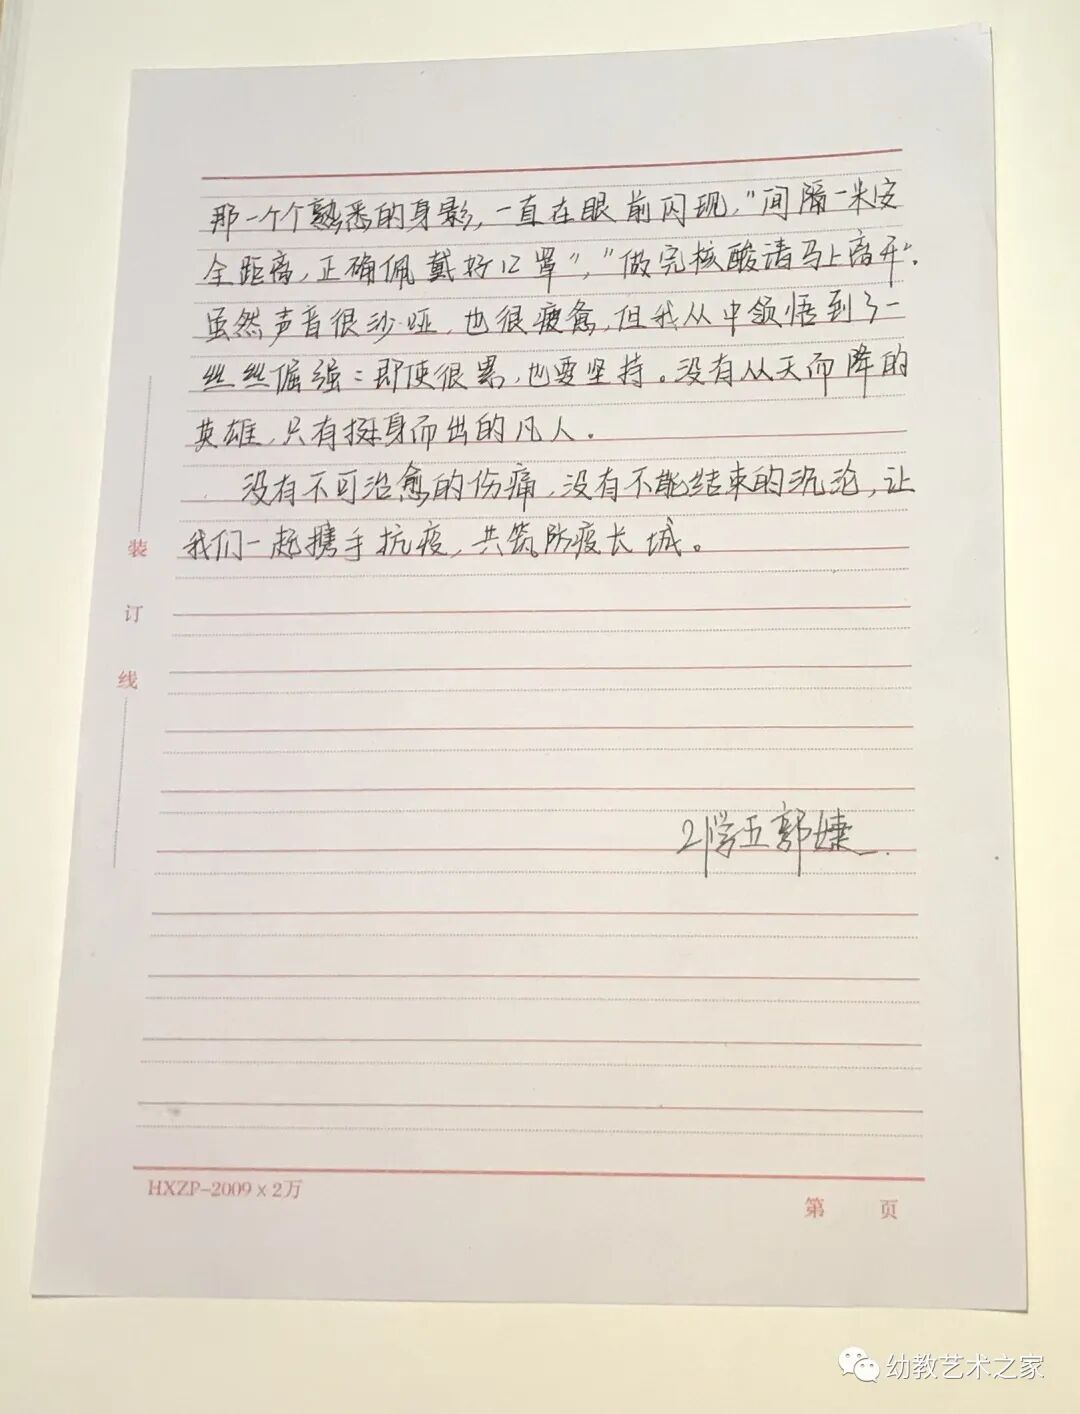 那一个个熟悉的身影，一直在眼前闪现，"间隔一米安
全距离，正确佩戴好口罩"，"做完核酸请马上离开"．
虽然声音很沙哑，也很疲惫，但我从中领悟到了一
丝丝倔强：即使很累，也要坚持。没有从天而降的
英雄，只有挺身而出的凡人．
没有不可治愈的伤痛，没有不能结束的沉沦，让
我们一起携手抗疫，共筑防疫长城。
装
订
线
21学五郭婕
HXZP-2009×2万
第 页
幼教艺术之家